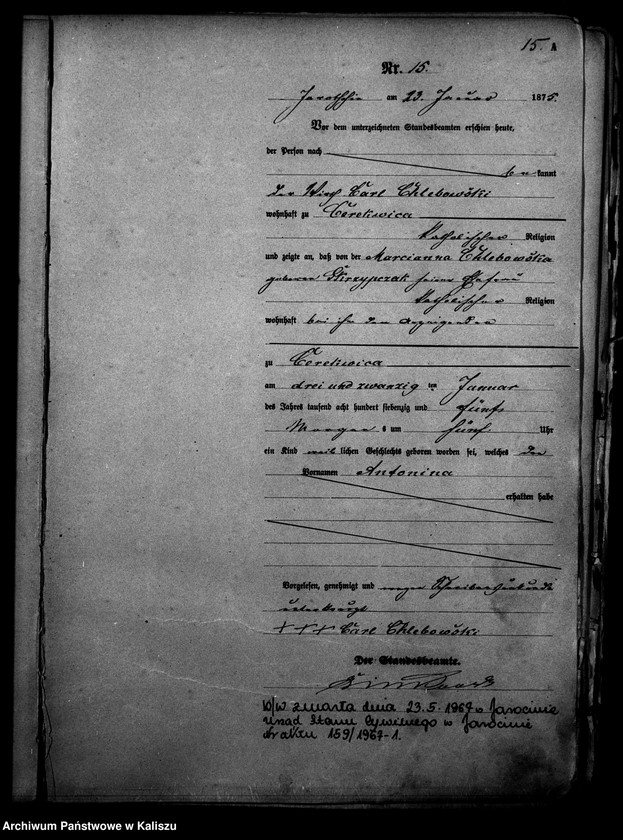 15. A
Nr. 15.
am 23. Januar 1875.
Vor dem unterzeichneten Standesbeamten erschien heute,
der Person nach
be kannt
der Wirth Carl Chlebowski
wohnhaft zu Cerekwica
katholischer Religion
und zeigte an, daß von der Marcianna Chlebowska
geborenen Skrzypczak seiner Ehefrau
katholischer Religion
wohnhaft bei ihm dem Anzeigenden
zu Cerekwica
am drei und zwanzig ten Januar
des Jahres tausend acht hundert siebenzig und fünf
Morgens um fünf Uhr
ein Kind weiblichen Geschlechts geboren worden sei, welches den
Vornamen Antonina
erhalten habe
Vorgelesen, genehmigt und wegen
unterkreuzt
+++ Carl Chlebowski
Der Standesbeamte.
W/w zmarła dnia 23.5.1967 w Jarocinie
Urząd Stanu Cywilnego w Jarocinie
Nr aktu 159/1967-1.
Archiwum Państwowe w Kaliszu